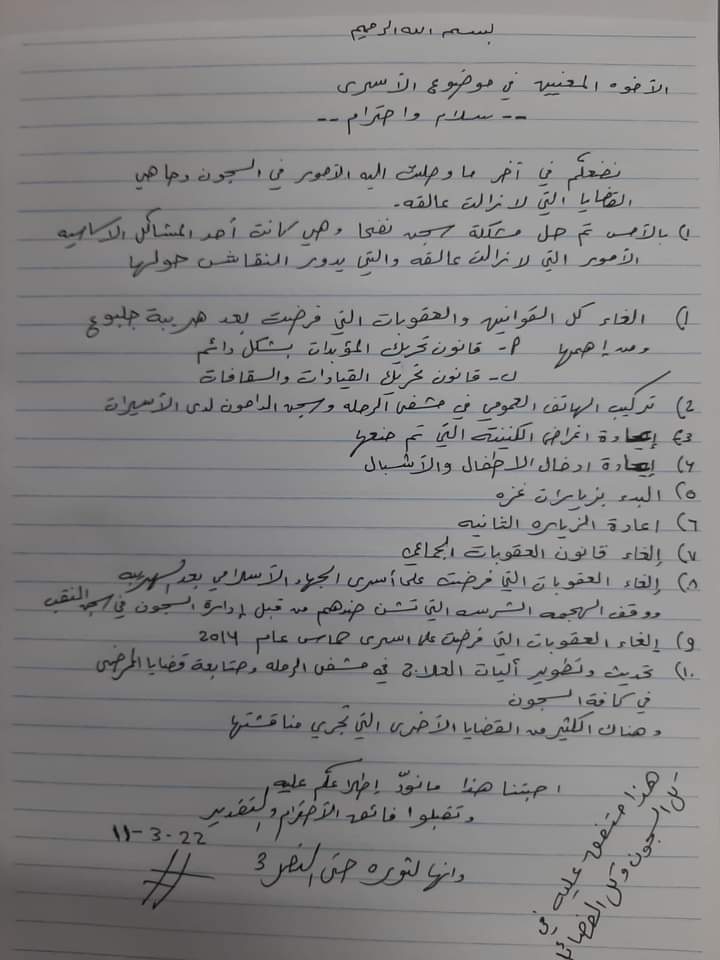 بسم الله الرحيم
الأخوه المعنيين في موضوع الأسرى
-- سلام واحترام --
نضعكم في آخر ما وصلت اليه الأمور في السجون وما هي
القضايا التي لا زالت عالقه.
١) بالأمس تم حل مشكلة سجن نفحا وهي كانت أحد المشاكل الاساسيه
الأمور التي لا زالت عالقه والتي يدور النقاش حولها
١) الغاء كل القوانين والعقوبات التي فرضت بعد هريبة جلبوع
ومن إهمها أ- قانون تحريك المؤبدات بشكل دائم
ب- قانون تحريك القيادات والسقافات
2) تركيب الهاتف العمومي في مشفى الرمله وسجن الدامون لدى الأسيرات
3) إعادة اغراض الكنتينه التي تم منعها
٤) إعادة ادخال الاطفال والأشبال
٥) البدء بزيارات غزه
٦) اعادة الزياره الثانيه
٧) إلغاء قانون العقوبات الجماعي
٨) إلغاء العقوبات التي فرضت على أسرى الجهاد الأسلامي بعد الهريبه
ووقف الهجمه الشرسه التي تشن ضدهم من قبل إدارة السجون في سجن النقب
9) إلغاء العقوبات التي فرضت على اسرى حماس عام 2014
١٠) تحديث وتطوير أليات العلاج في مشفى الرمله ومتابعة قضايا المرضى
في كافة السجون
وهناك الكثير من القضايا الأخرى التي تجري مناقشتها
احبتنا هذا ما نودّ إطلاعكم عليه
وتقبلوا فائق الأحترام والتقدير
11-3-22
وانها لثوره حتى النصر 3
هذا متفق عليه في
كل السجون وكل الفصائل